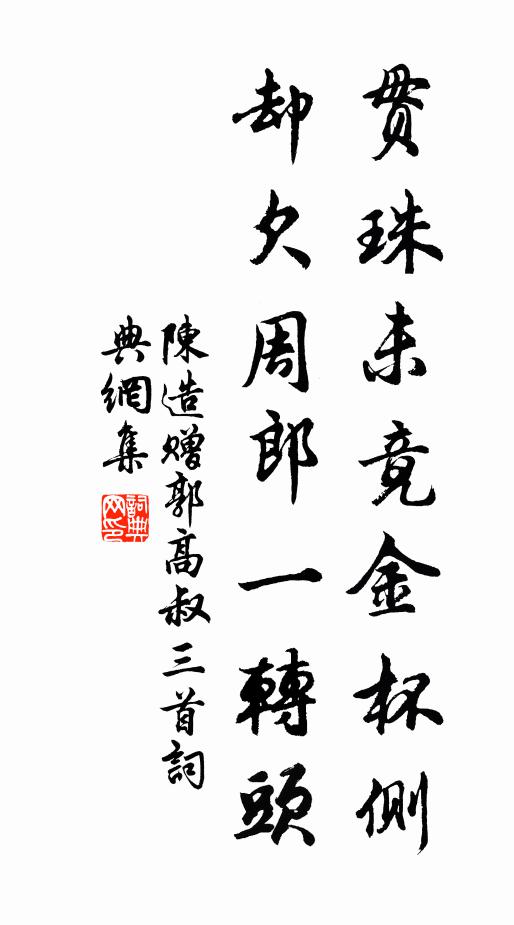 貫珠未竟金杯側
却欠周郎一轉頭
陳造贈郭高叔三首詞
典網集
詞典網印